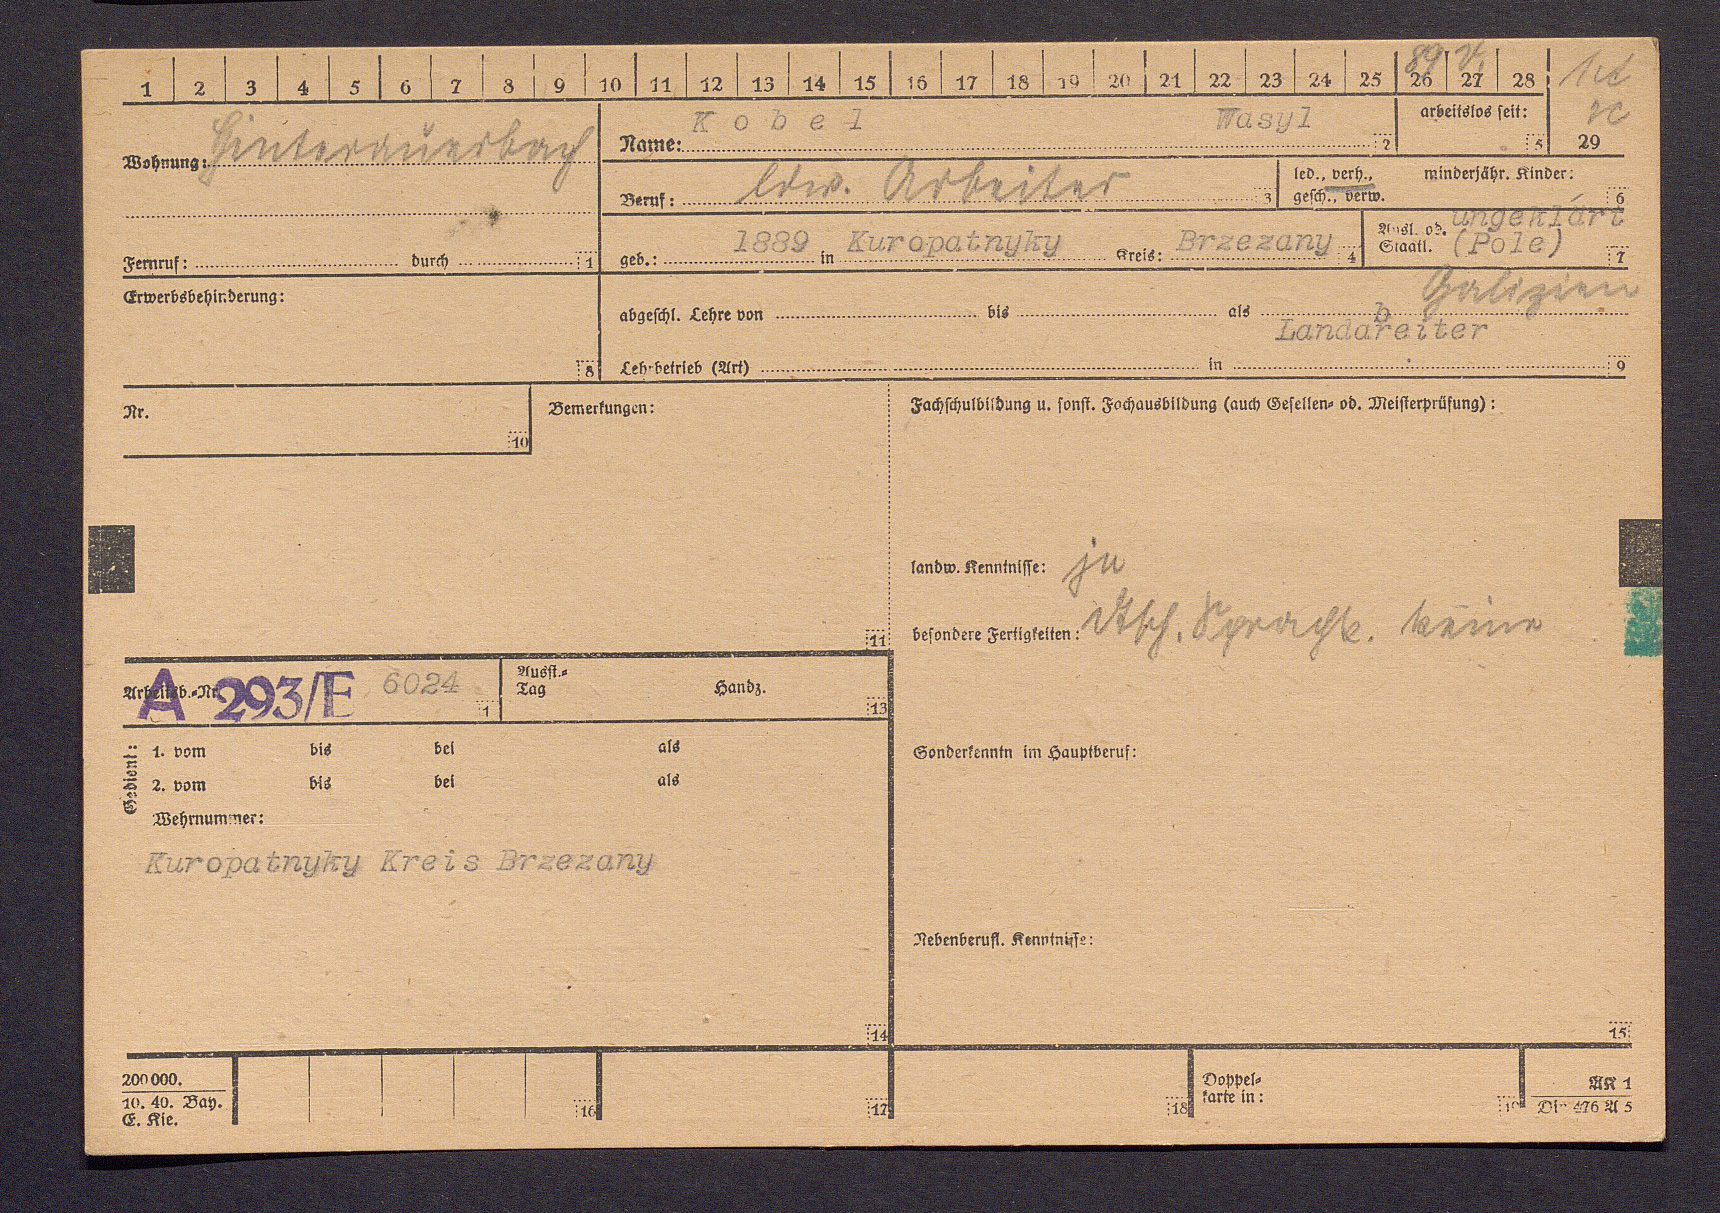 89 V.
1 2 3 4 5 6 7 8 9 10 11 12 13 14 15 16 17 18 19 20 21 22 23 24 25 26 27 28
29
Wohnung: Hinterauerbach
Fernruf: durch 1
Name: Kobel Wasyl 2
arbeitslos seit: 5
Beruf: ldw. Arbeiter 3
led., verh., minderjähr. Kinder:
gesch., verw. 6
geb.: 1889 in Kuropatnyky Kreis: Brzezany 4
Ausl. od. Staatl. ungeklärt
(Pole) 7
Galizien
Erwerbsbehinderung: 8
abgeschl. Lehre von bis als
Landabreiter
Lehrbetrieb (Art) in 9
Nr. 10
Bemerkungen: 11
Fachschulbildung u. sonst. Fachausbildung (auch Gesellen- od. Meisterprüfung):
landw. Kenntnisse: ja
besondere Fertigkeiten: dtsch. Sprachk. keine
Arbeitsb.-Nr. A 293/E 6024 1
Ausst.-
Tag Handz. 13
Gedient:
1. vom bis bei als
2. vom bis bei als
Wehrnummer:
Kuropatnyky Kreis Brzezany
14
Sonderkenntn im Hauptberuf:
Nebenberufl. Kenntnisse:
15
200 000.
10. 40. Bay.
E. Kie.
16 17 18
Doppel-
karte in: 19
AK 1
Din 476 A 5